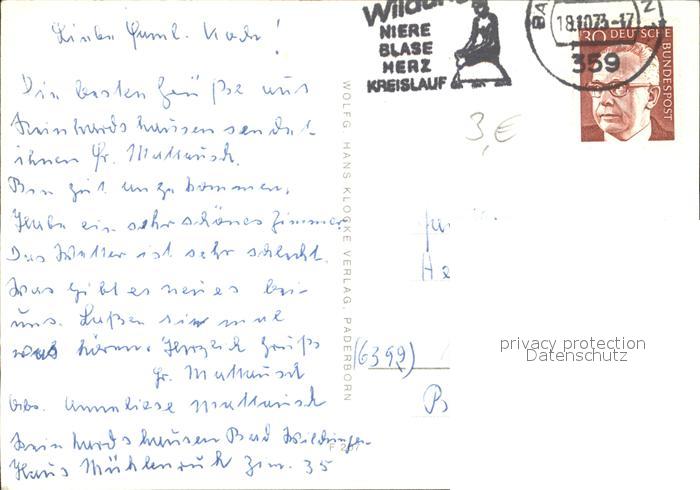 Liebe Faml. Koch!
Die besten Grüße aus
Reinhardshausen sendet
ihnen Fr. Mattausch.
Bin gut angekommen,
Habe ein sehr schönes Zimmer.
Das Wetter ist sehr schlecht.
Was gibt es neues bei
uns. Laßen sie mal
was hören. Herzlich Grüße
Fr. Mattausch
Abs. Anneliese Mattausch
Reinhardshausen Bad Wildungen
Haus Mühlenruh Zim. 35
WOLFG. HANS KLOCKE VERLAG, PADERBORN
F 2
NIERE
BLASE
HERZ
KREISLAUF
BA
18.10.73-17
N
359
30 DEUTSCHE BUNDESPOST
3,€
Ha
(6399)
B
privacy protection
Datenschutz